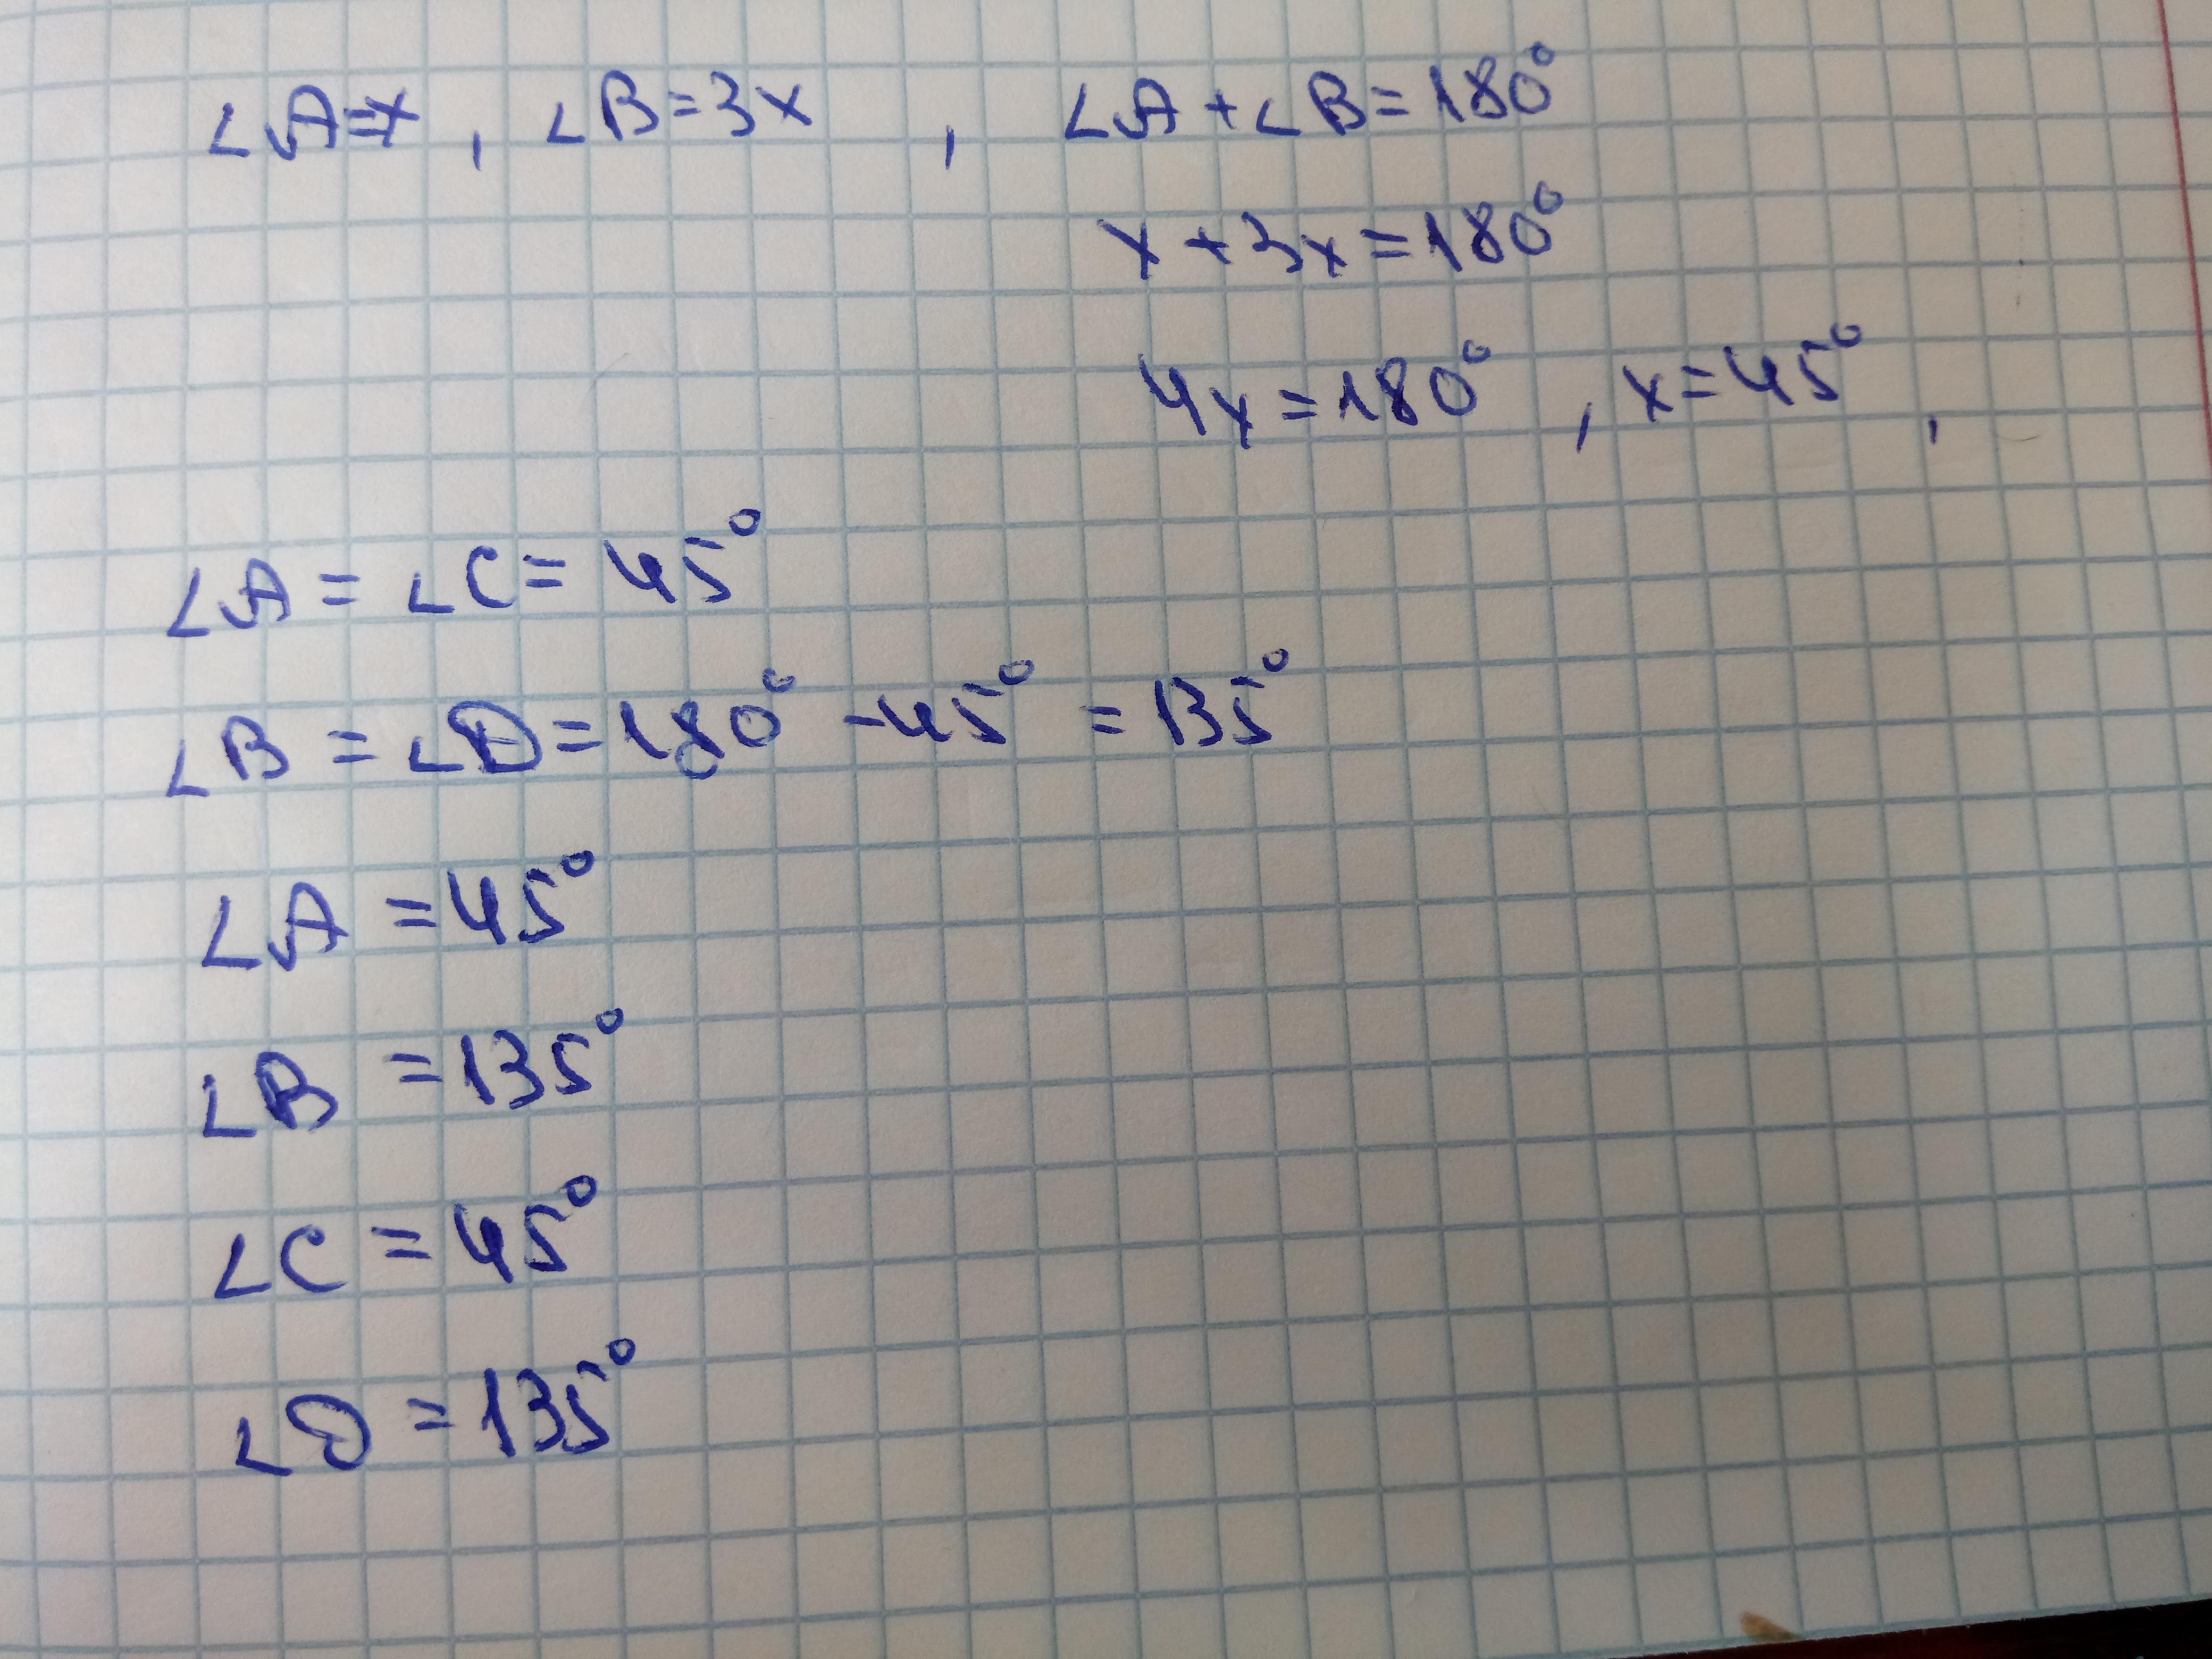 ∠A=x, ∠B=3x, ∠A+∠B=180°
x+3x=180°
4x=180°, x=45°,
∠A=∠C=45°
∠B=∠D=180°-45°=135°
∠A=45°
∠B=135°
∠C=45°
∠D=135°